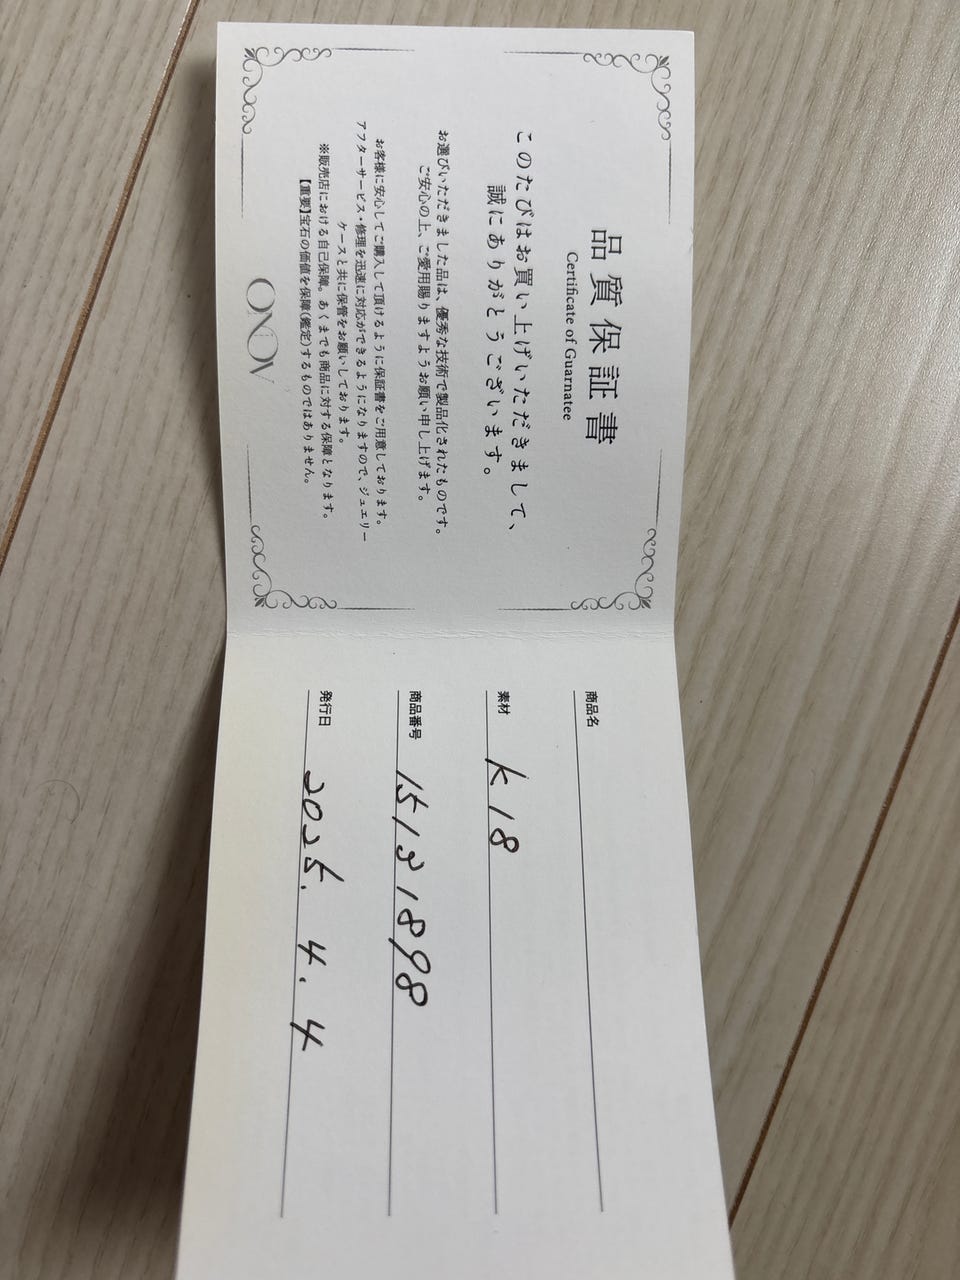 品質保証書
Certificate of Guarnatee
このたびはお買い上げいただきまして、
誠にありがとうございます。
お選びいただきました品は、優秀な技術で製品化されたものです。
ご安心の上、ご愛用賜りますようお願い申し上げます。
お客様に安心してご購入して頂けるように保証書をご用意しております。
アフターサービス・修理を迅速に対応ができるようになりますので、ジュエリー
ケースと共に保管をお願いしております。
※販売店における自己保障。あくまでも商品に対する保障となります。
【重要】宝石の価値を保障(鑑定)するものではありません。
商品名
素材 K18
商品番号 15131898
発行日 2025.4.4